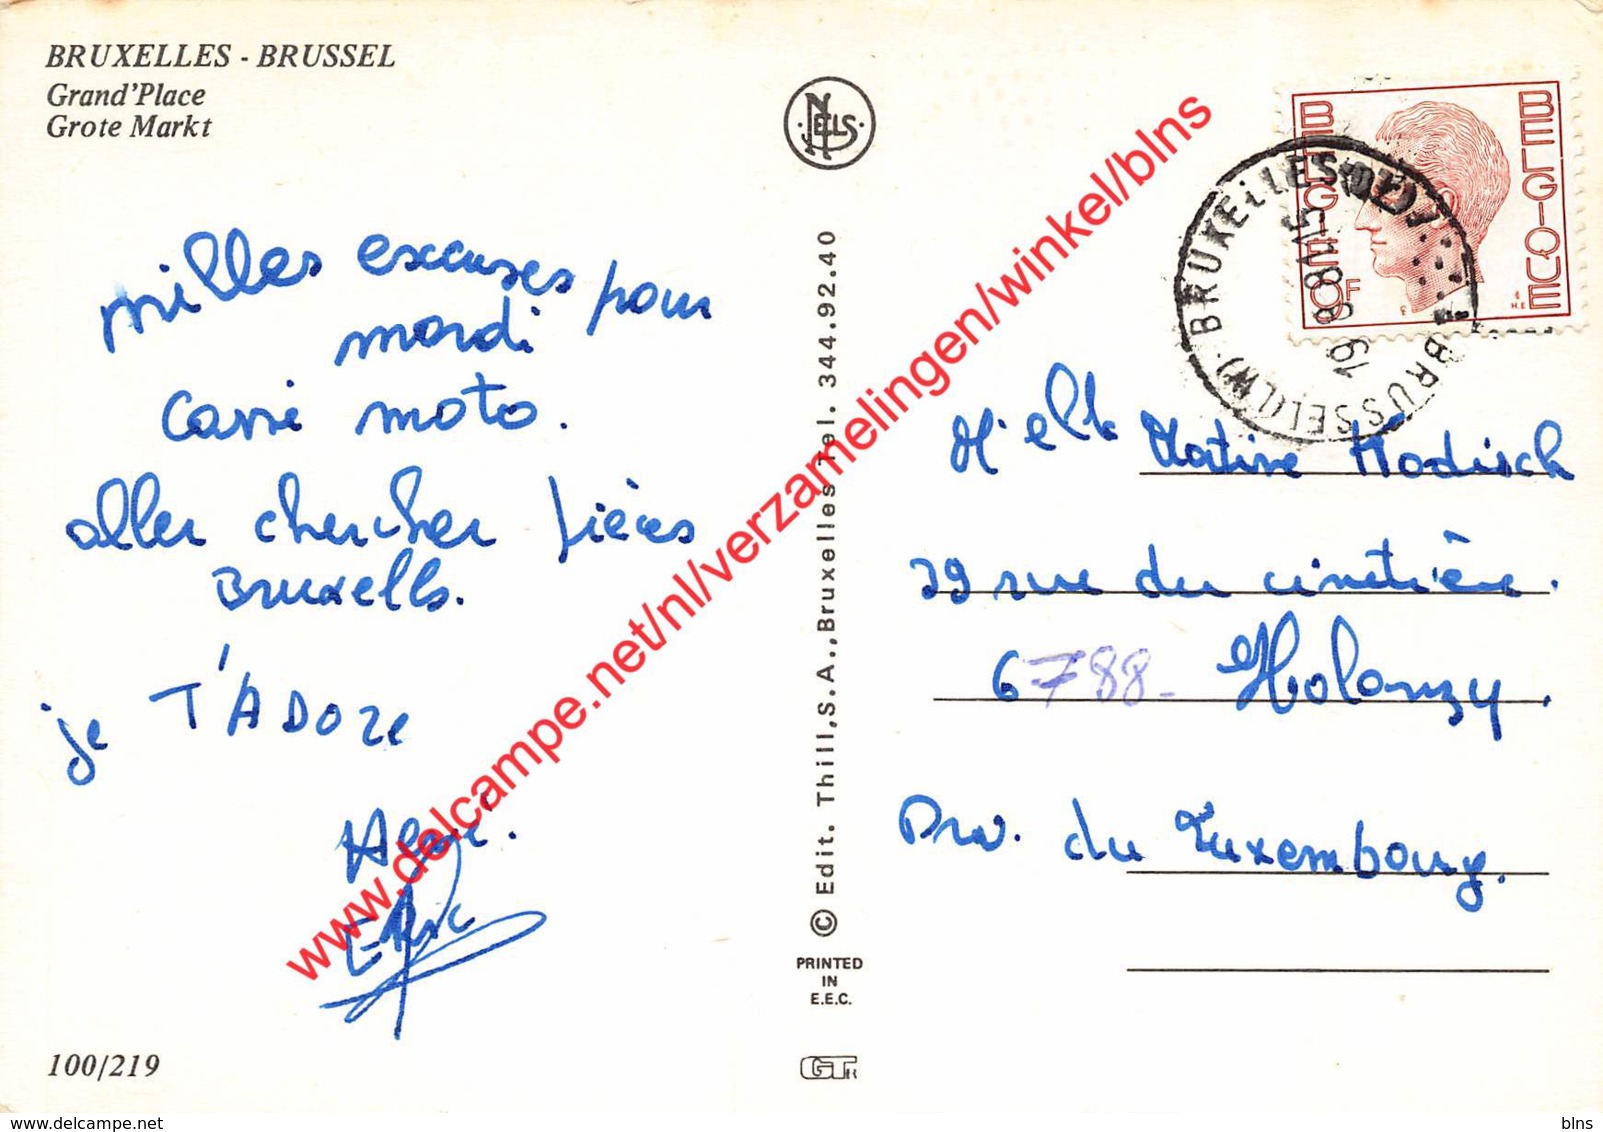 BRUXELLES - BRUSSEL
Grand'Place
Grote Markt
NELS
BELGIE
BELGIQUE
F
BRUXELLES
BRUSSEL (LW)
milles excuses pour
mardi
Carré moto.
aller chercher pièces
Bruxells.
je T'ADORE
Eric
100/219
© Edit. Thill, S.A., Bruxelles Tel. 344.92.40
PRINTED
IN
E.E.C.
M'elle Katine Modisch
39 rue du cimetière.
6788 - Holanzy.
Prov. du Luxembourg.
www.delcampe.net/nl/verzamelingen/winkel/blns
www.delcampe.net
blns